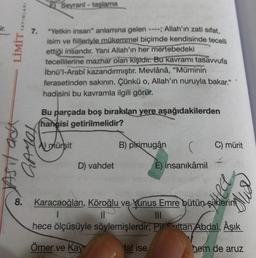 Seyrani - taşlama
LİMİT YAYINLARI
7. "Yetkin insan" anlamına gelen ----; Allah'ın zati sıfat,
isim ve fiilleriyle mükemmel biçimde kendisinde tecelli
ettiği insandır. Yani Allah'ın her mertebedeki
tecellilerine mazhar olan kişidir. Bu kavramı tasavvufa
İbnü'l-Arabî kazandırmıştır. Mevlânâ, "Müminin
ferasetinden sakının. Çünkü o, Allah'ın nuruyla bakar."
hadisini bu kavramla ilgili görür.
Bu parçada boş bırakılan yere aşağıdakilerden
hangisi getirilmelidir?
A) mürşit B) pirimugân C) mürit
D) vahdet E) insanıkâmil
8. Karacaoğlan, Köroğlu ve Yunus Emre bütün şiirlerini
I II III
hece ölçüsüyle söylemişlerdir; Pir Sultan Abdal, Âşık
Ömer ve ise hem de aruz